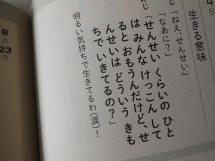 生きる意味
「ねえ、せんせい」
「なあに？」
「せんせい くらいの ひと
は みんな けっこん して
ると おもうんだけど、せ
んせいは どういう きも
ちで いきてるの？」
明るい気持ちで生きてるわ（涙）！
8月
23日